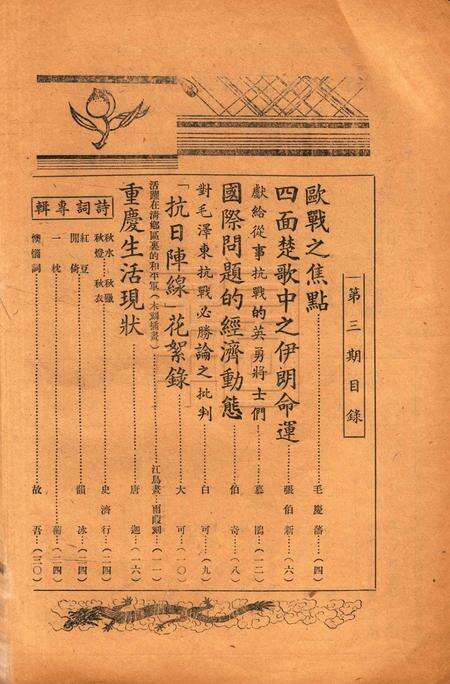 第三期目錄
歐戰之焦點……毛慶藩…(四)
四面楚歌中之伊朗命運……張伯新…(六)
獻給從事抗戰的英勇將士們……慕鵑(一二)
國際問題的經濟動態……伯奇…(八)
對毛澤東抗戰必勝論之批判……白可…(九)
「抗日陣線」花絮錄……大可…(一〇)
活躍在清鄉區裏的和平軍(木刻插畫)……江島畫…雨霞刻…(一一)
重慶生活現狀……唐迦…(一六)
詩詞專輯
秋水…秋獵
秋燈…秋衣……史濟行…(一四)
紅豆
閒倚……韻冰(二四)
一枕……菊…(二四)
懊惱詞……故吾…(三〇)